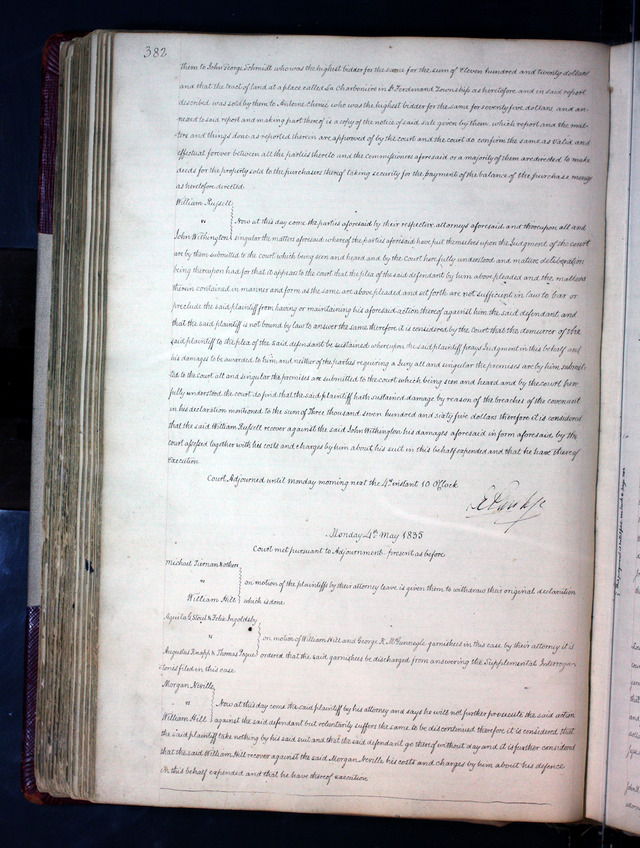 382
them to John George Schmidt who was the highest bidder for the same for the sum of Eleven hundred and twenty dollars
and that the tract of land at a place called La Charbonière in St Ferdinand Township as heretofore and in said report
described was sold by them to Antoine Chenié who was the highest bidder for the same for seventy five dollars, and an-
nexed to said report and making part thereof is a copy of the notice of said sale given by them, which report and the mat-
ters and things done as reported therein are approved of by the court and the court do confirm the same as valid and
effectual forever between all the parties thereto and the commissioners aforesaid or a majority of them are directed to make
deeds for the property sold to the purchasers thereof taking security for the payment of the balance of the purchase money
as heretofore directed
William Russell
vs
Now at this day come the parties aforesaid by their respective attorneys aforesaid and thereupon all and
John Withington singular the matters aforesaid whereof the parties aforesaid have put themselves upon the Judgment of the court
are by them submitted to the court which being seen and heard and by the Court here fully understood and mature deliberation
being thereupon had for that it appears to the court that the plea of the said defendant by him above pleaded and the matters
therein contained in manner and form as the same are above pleaded and set forth are not sufficient in law to bar or
preclude the said plaintiff from having or maintaining his aforesaid action thereof against him the said defendant and
that the said plaintiff is not bound by law to answer the same therefore it is considered by the Court that the demurrer of the
said plaintiff to the plea of the said defendant be sustained whereupon the said plaintiff prays Judgment in this behalf and
his damages to be awarded to him, and neither of the parties requiring a Jury all and singular the premises are by them submit-
ted to the court all and singular the premises are submitted to the court which being seen and heard and by the court here
fully understood the court do find that the said plaintiff hath sustained damage by reason of the breaches of the covenant
in his declaration mentioned to the sum of Three thousand seven hundred and sixty five dollars therefore it is considered
that the said William Russell recover against the said John Withington his damages aforesaid in form aforesaid, by the
court assessed together with his costs and charges by him about his suit in this behalf expended and that he have thereof
execution
Court Adjourned until monday morning next the 4th instant 10 O'Clock
Monday 4th May 1835
Court met pursuant to Adjournment present as before
Michael Tiernan & others
vs
on motion of the plaintiffs by their attorney leave is given them to withdraw their original declaration
William Hill which is done
& Felix Ingoldsby
vs
on motion of William Hill and George K. McGunnegle garnishees in this case by their attorney it is
Augustus Knapp & Thomas Pogue ordered that the said garnishees be discharged from answering the Supplemental Interroga-
tories filed in this case
Morgan Neville
vs
Now at this day come the said plaintiff by his attorney and says he will not further prosecute the said action
William Hill against the said defendant but voluntarily suffers the same to be discontinued therefore it is considered that
the said plaintiff take nothing by his said suit and that the said defendant go thereof without day and it is further considered
that the said William Hill recover against the said Morgan Neville his costs and charges by him about his defence
in this behalf expended and that he have thereof execution